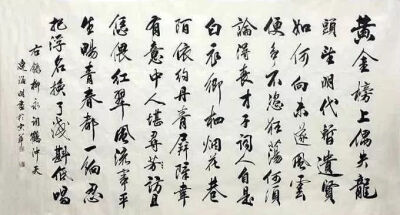 黃金榜上偶失龍
頭望明代暫遺賢
如何向未遂風雲
便爭不恣狂蕩何須
論得喪才子詞人自是
白衣卿相烟花巷
陌依約丹青屏障幸
有意中人堪尋芳訪且
恁偎紅翠風流事平
生暢青春都一餉忍
把浮名換了淺斟低唱
右錄柳永詞鶴沖天